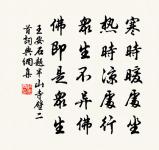 寒時暖處坐
熱時涼處行
衆生不異佛
佛即是衆生
王安石題半山寺壁二
首詞典網集